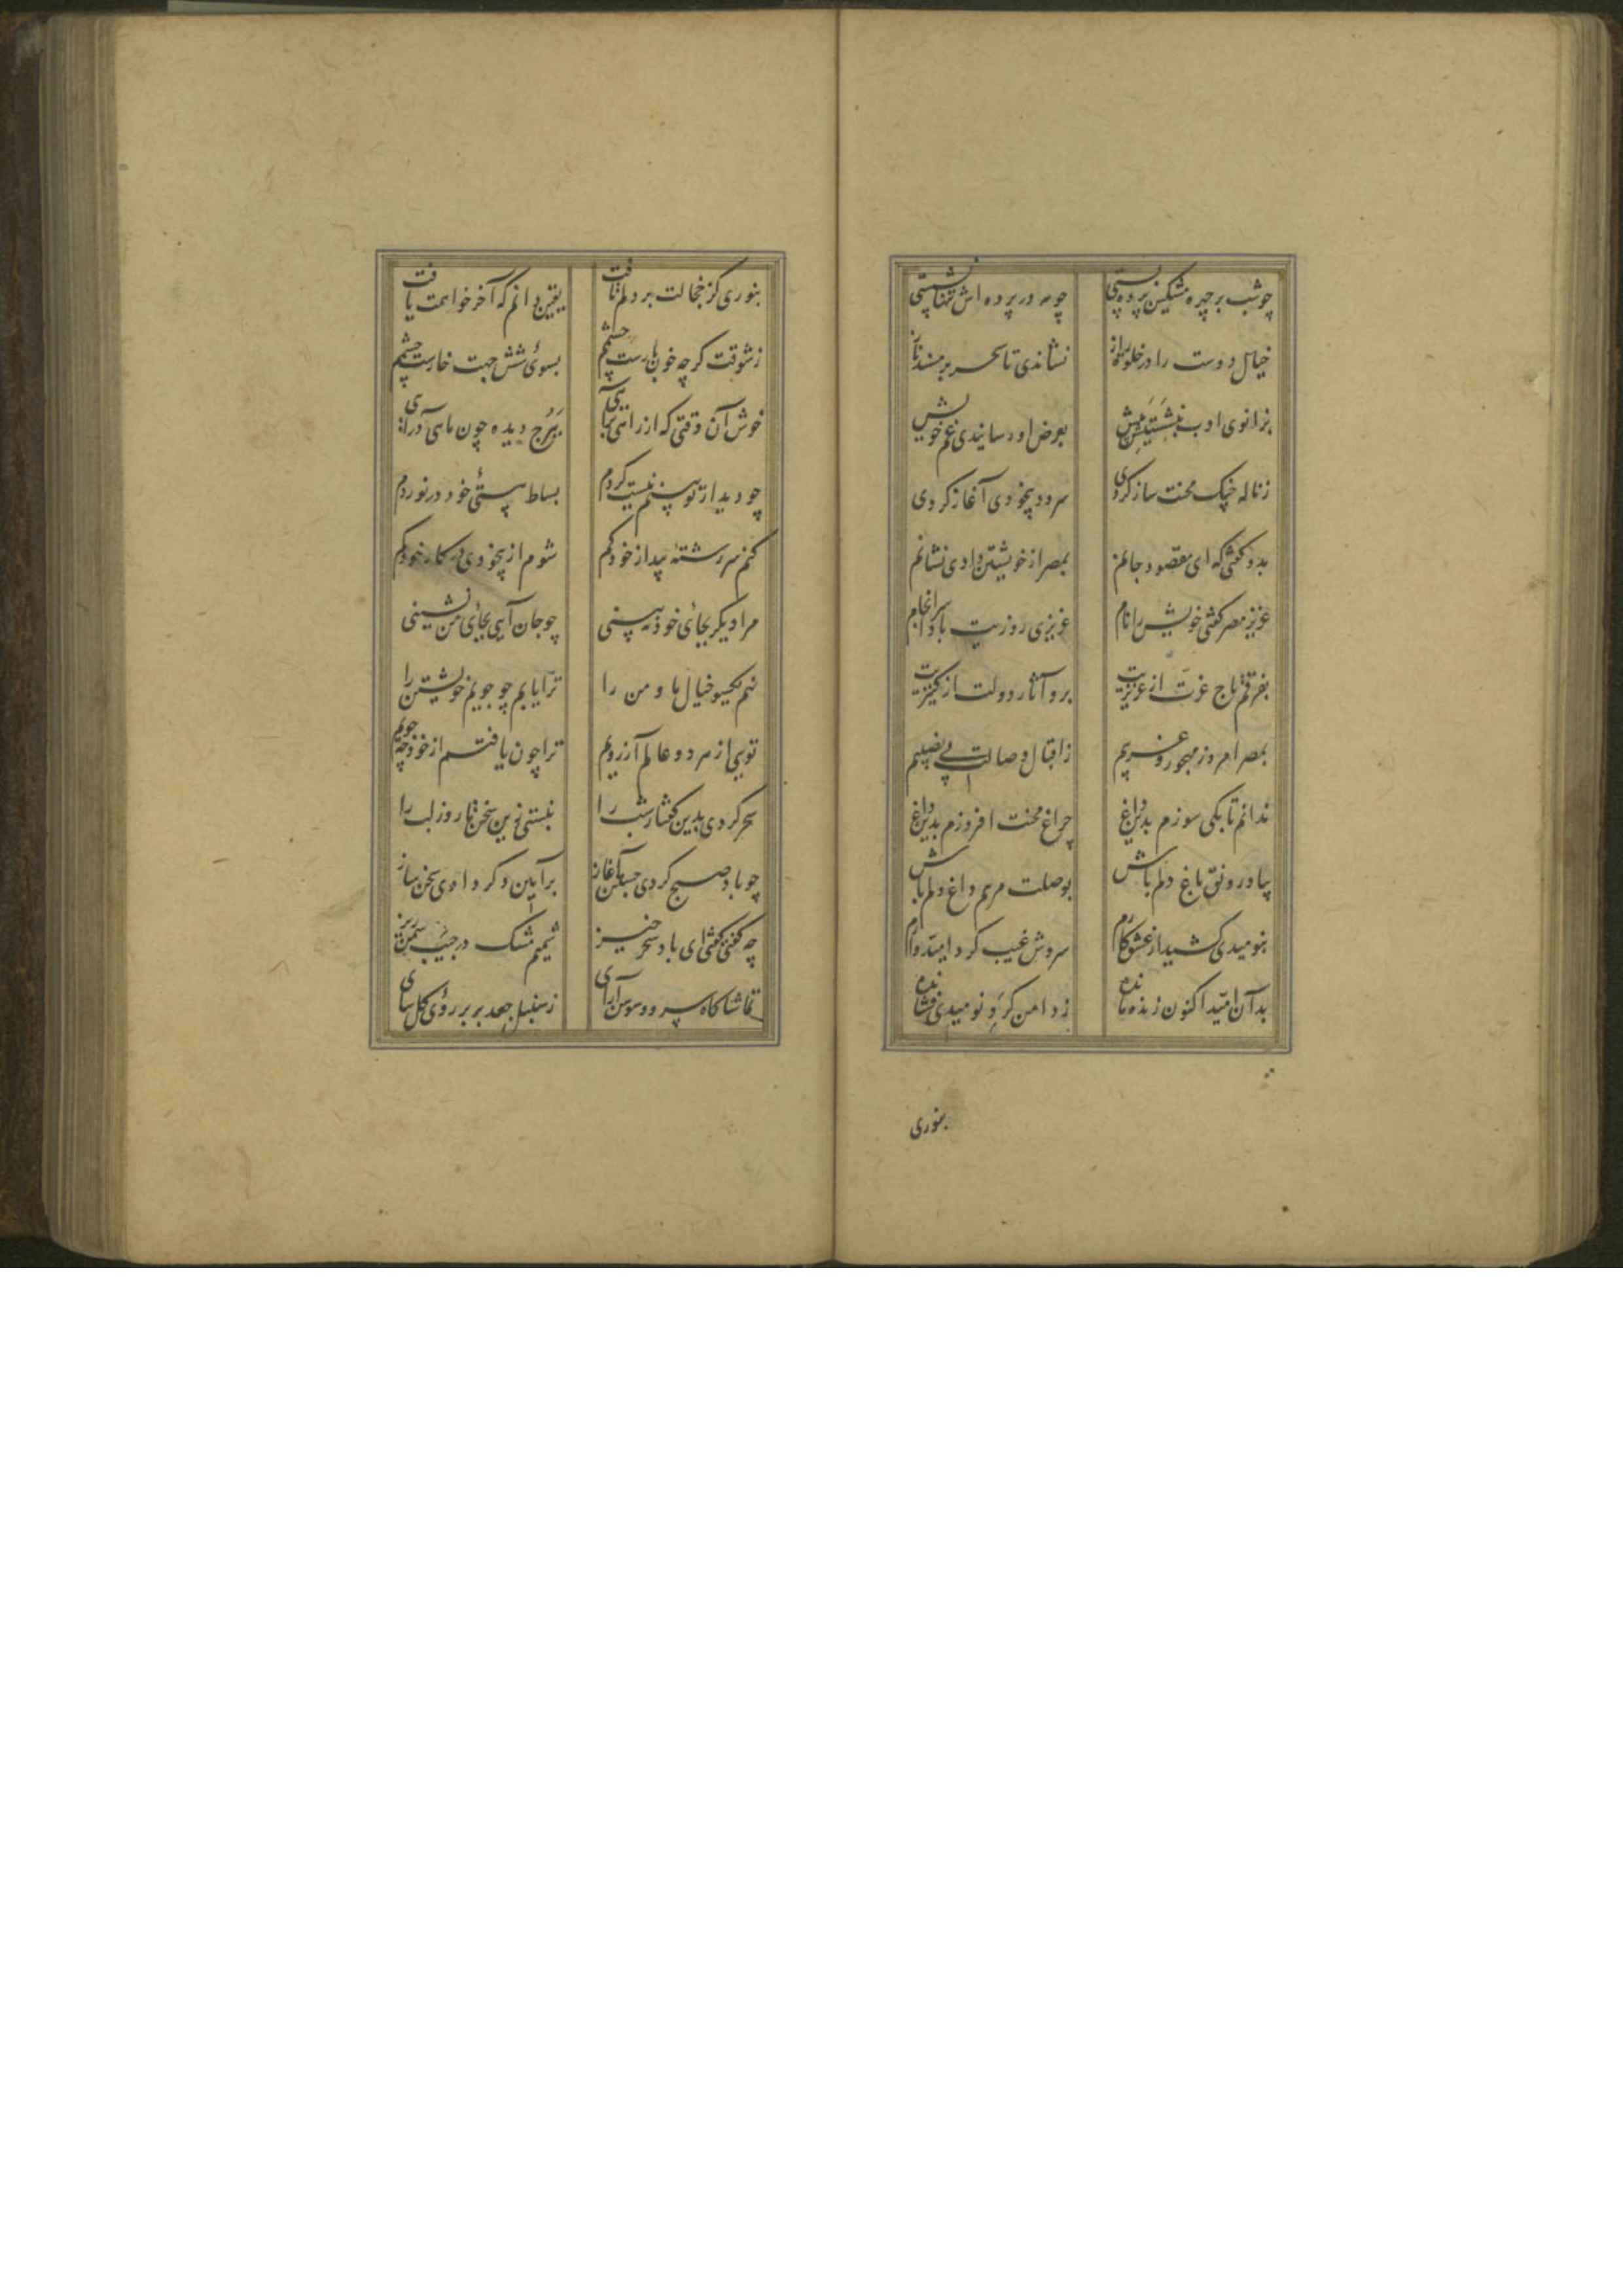 چو شب بر چهره مشکین پرده بستی چو مه در پرده اش تنها نشستی
خیال دوست را در خلوت راز نشاندی تا سحر بر مسند ناز
بزانوی ادب بنشستیش پیش بعرض او رسانیدی غم خویش
ز ناله چنگ محنت ساز کردی سرود بیخودی آغاز کردی
بدو گفتی که ای مقصود جانم بمصر از خویشتن دادی نشانم
عزیز مصر گفتی خویش را نام عزیزی روزیت بادا سرانجام
بفرقم تاج عزت از عزیزیت برو آثار دولت از کنیزیت
بمصر امروز مهجور و غریبم ز اقبال وصالت بی نصیبم
ندانم تا بکی سوزم بدین داغ چراغ محنت افروزم بدین داغ
بیا و رونق باغ دلم باش بوصلت مرهم داغ دلم باش
بنومیدی کشید از عشق کارم سروش غیب کرد امیدوارم
بدان امید اکنون زنده مانده ز دامن گرد نومیدی فشانده
بنوری
بنوری کز جمالت بر دلم تافت یقین دانم که آخر خواهمت یافت
ز شوقت گرچه خون بارست چشمم بسوی شش جهت چارست چشمم
خوش آن وقتی که از راهی برآیی ببرج دیده چون ماهی درآیی
چو دیدار تو بینم نیست گردم بساط هستی خود در نوردم
کنم سر رشته پندار خود گم شوم از بیخودی در کار خود گم
مرا دیگر بجای خود نه بینی چو جان آیی بجای من نشینی
نهم یکسو خیال ما و من را ترا یابم چو جویم خویشتن را
تویی از هر دو عالم آرزویم ترا چون یافتم از خود چه جویم
سحر کردی بدین گفتار شب را نبستی زین سخن تا روز لب را
چو باد صبح کردی جستن آغاز بر آیین دگر دادی سخن ساز
چه گفتی گفتی ای باد سحر خیز شمیم مشک در جیب سمن ریز
تماشاگاه سرو و سوسن آرای ز سنبل جعد بر بر روی گل سای